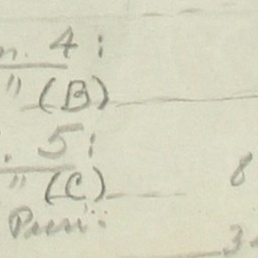 n. 4:
" (B)
. 5:
" (C) 8
3